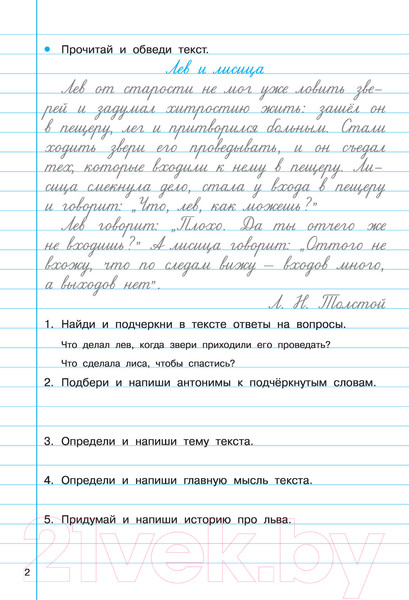 Прочитай и обведи текст.
Лев и лисица
Лев от старости не мог уже ловить зве-
рей и задумал хитростию жить: зашёл он
в пещеру, лег и притворился больным. Стали
ходить звери его проведывать, и он съедал
тех, которые входили к нему в пещеру. Ли-
сица смекнула дело, стала у входа в пещеру
и говорит: „Что, лев, как можешь?"
Лев говорит: „Плохо. Да ты отчего же
не входишь?" А лисица говорит: „Оттого не
вхожу, что по следам вижу – входов много,
а выходов нет".
Л. Н. Толстой
1. Найди и подчеркни в тексте ответы на вопросы.
Что делал лев, когда звери приходили его проведать?
Что сделала лиса, чтобы спастись?
2. Подбери и напиши антонимы к подчёркнутым словам.
3. Определи и напиши тему текста.
4. Определи и напиши главную мысль текста.
5. Придумай и напиши историю про льва.
2
21vek.by